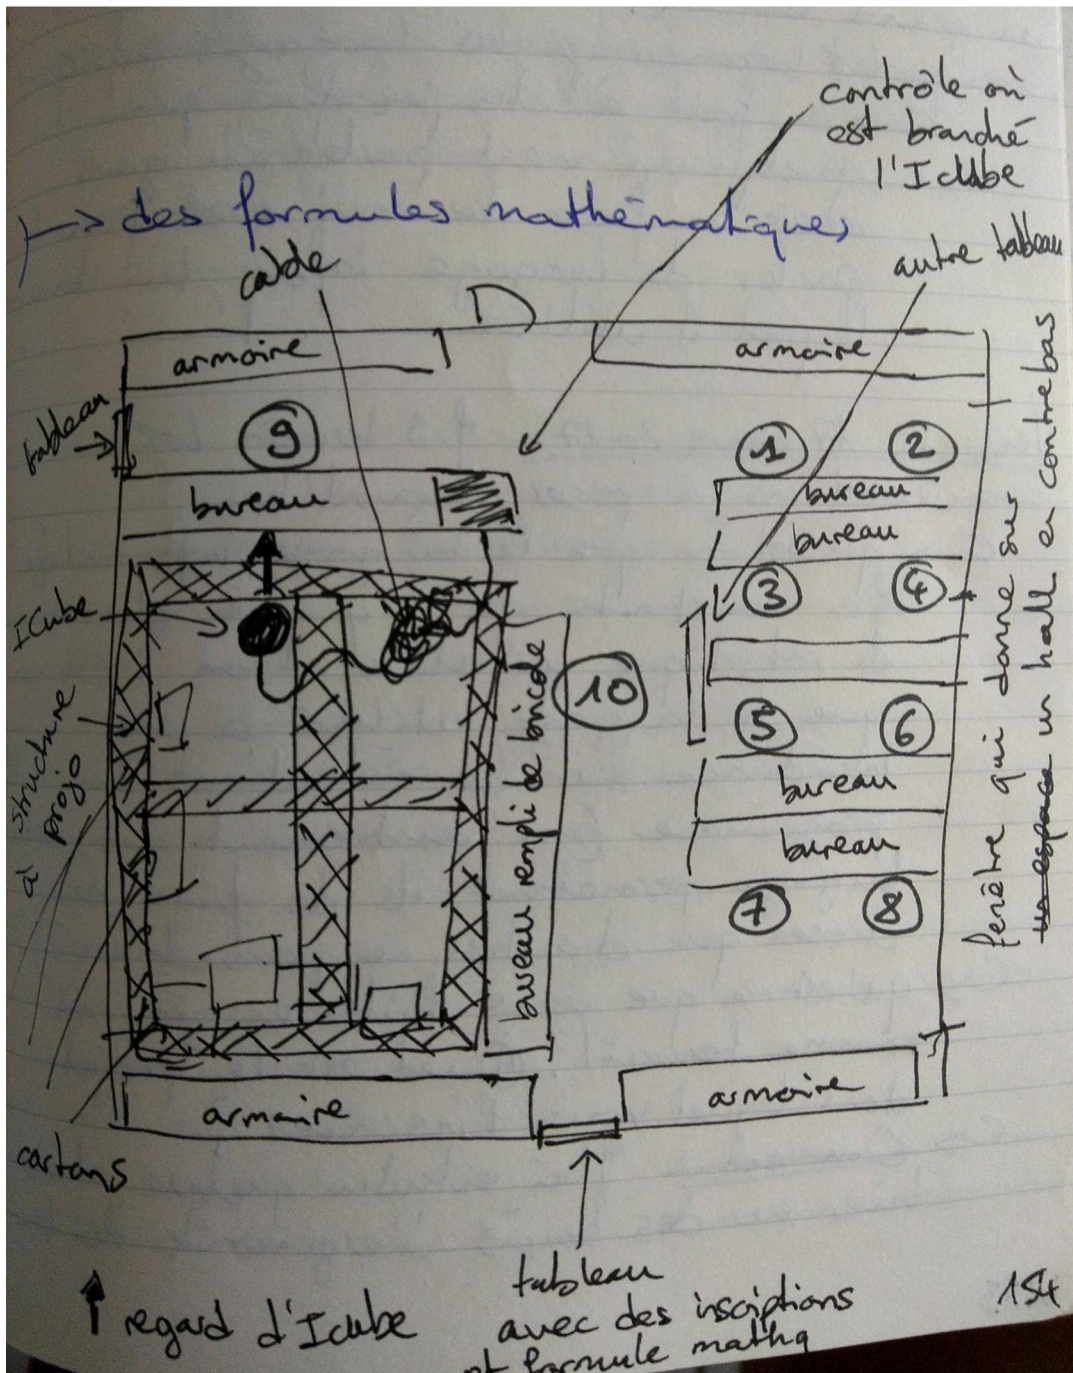 contrôle où
est branché
l'Icube
→ des formules mathématiques
cable
autre tableau
armoire
armoire
tableau
9
1
2
bureau
bureau
bureau
3
4
ICube
structure
à projo
bureau rempli de bricole
10
5
6
bureau
bureau
7
8
fenêtre qui donne sur
un espace un hall en contrebas
armoire
armoire
cartons
tableau
avec des insciptions
et formule mathq
regard d'Icube
154